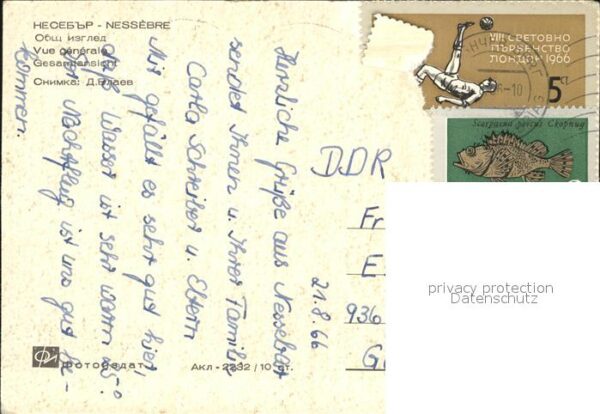 НЕСЕБЪР - NESSÈBRE
Общ изглед
Vue générale
Gesamtansicht
Снимка: Д. Влаев
Herzliche Grüße aus Nessebar
sendet Ihnen u. Ihrer Familie
Carla Schreiber u. Eltern
Mir gefällt es sehr gut hier!
das Wasser ist sehr warm 25°
der Nachtflug ist uns gut be-
kommen.
21.8.66
DDR
Fr
E
936
G
VIII СВЕТОВНО
ПЪРВЕНСТВО
ЛОНДОН 1966
5 СТ
Scorpaena porcus Скорпид
privacy protection
Datenschutz
Фотоиздат
Акл - 2232 / 10 ст.